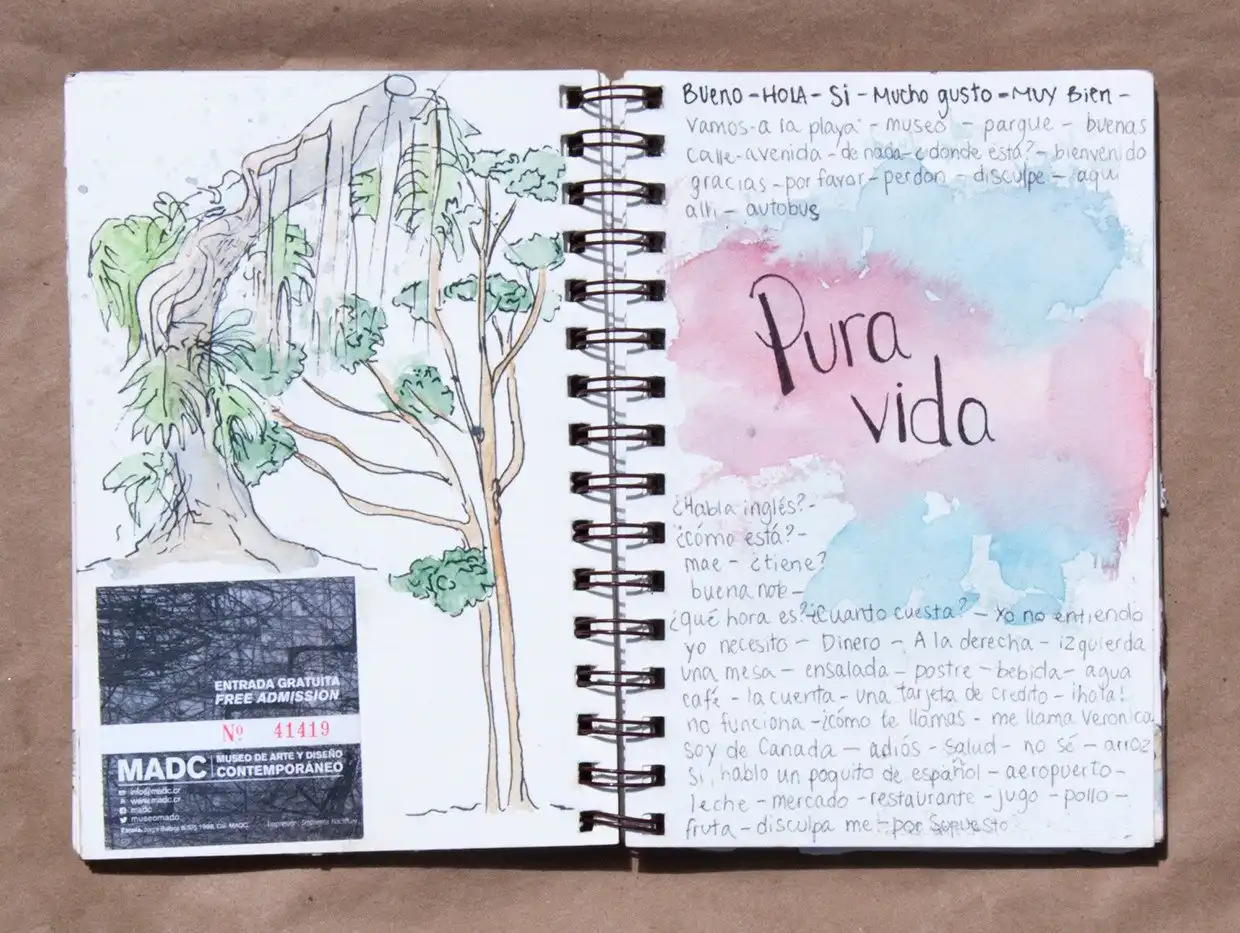 ENTRADA GRATUITA
FREE ADMISSION
Nº 41419
MADC MUSEO DE ARTE Y DISEÑO
CONTEMPORÁNEO
info@madc.cr
www.madc.cr
madc
museomadc
Bueno - HOLA - Si - Mucho gusto - MUY Bien -
vamos a la playa - museo - parque - buenas
calle - avenida - de nada - ¿donde está? - bienvenido
gracias - por favor - perdon - disculpe - aqui
alli - autobus
Pura
vida
¿Habla inglés? -
¿cómo está? -
mae - ¿tiene?
buena note -
¿qué hora es? ¿Cuanto cuesta? - Yo no entiendo
yo necesito - Dinero - A la derecha - izquierda
una mesa - ensalada - postre - bebida - agua
café - la cuenta - una tarjeta de credito - ¡hola!
no funciona - ¿cómo te llamas - me llama Veronica
soy de Canada - adiós - salud - no sé - arroz
Si, hablo un poquito de español - aeropuerto -
leche - mercado - restaurante - jugo - pollo -
fruta - disculpa me - por supuesto